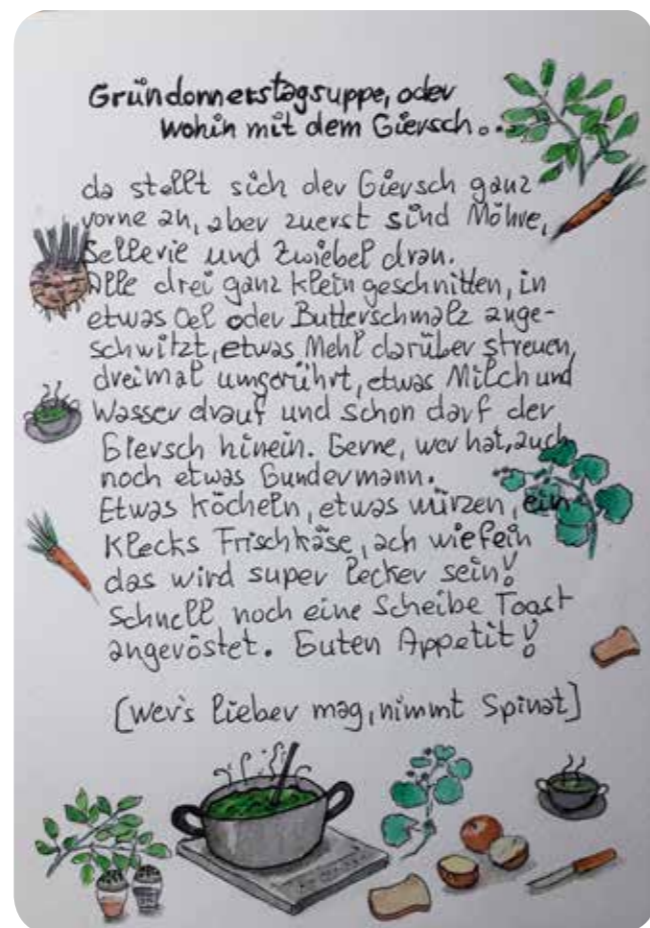 Gründonnerstagsuppe, oder
wohin mit dem Giersch...
da stellt sich der Giersch ganz
vorne an, aber zuerst sind Möhre,
Sellerie und Zwiebel dran.
Alle drei ganz klein geschnitten, in
etwas Oel oder Butterschmalz ange-
schwitzt, etwas Mehl darüber streuen,
dreimal umgerührt, etwas Milch und
Wasser drauf und schon darf der
Giersch hinein. Gerne, wer hat, auch
noch etwas Gundermann.
Etwas köcheln, etwas würzen, ein
Klecks Frischkäse, ach wie fein
das wird super lecker sein!
Schnell noch eine Scheibe Toast
angeröstet. Guten Appetit!
[wer's lieber mag, nimmt Spinat]